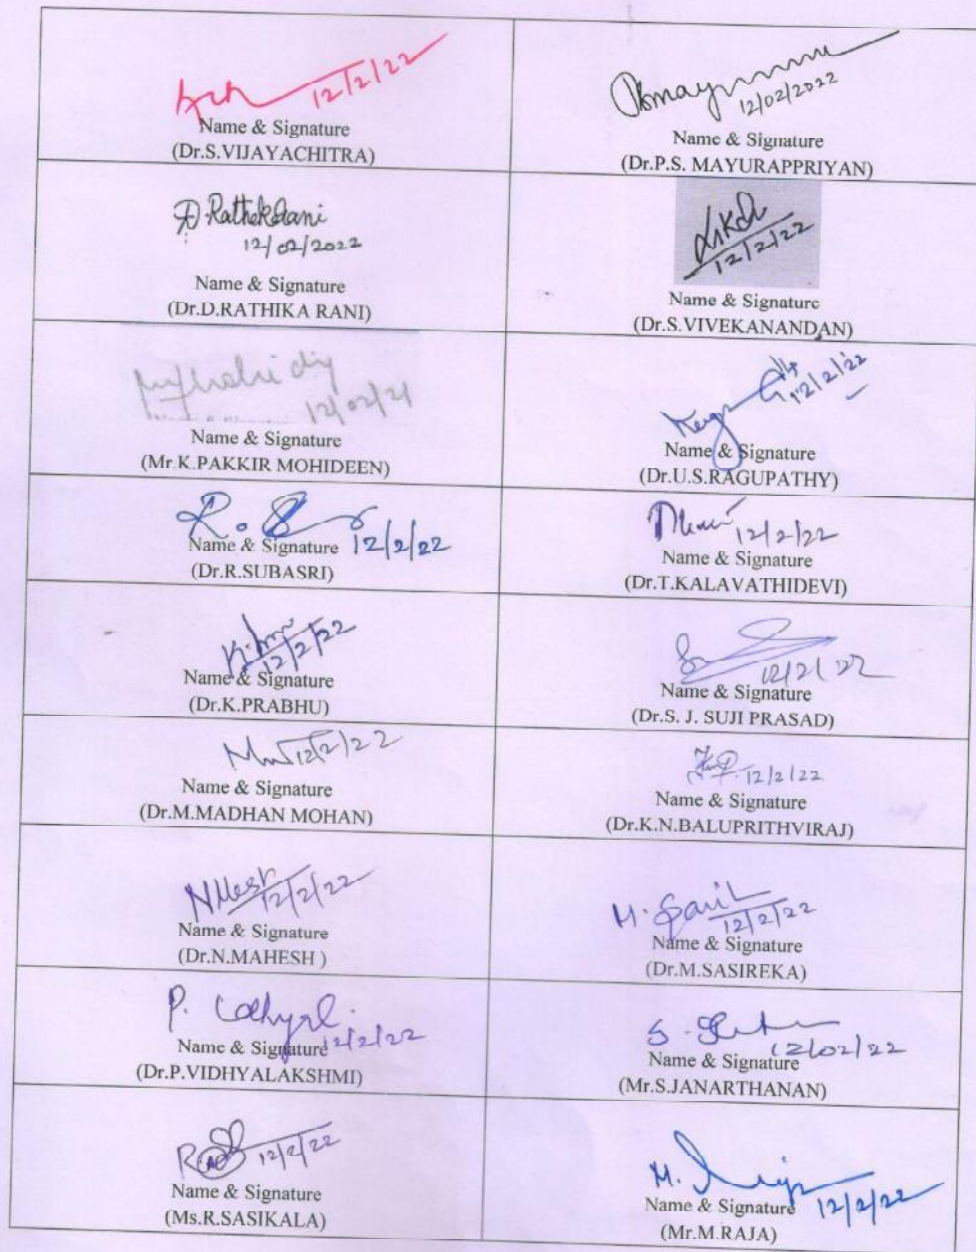 12/2/22
Name & Signature
(Dr.S.VIJAYACHITRA)
12/02/2022
Name & Signature
(Dr.P.S. MAYURAPPRIYAN)
D. Rathika Rani
12/02/2022
Name & Signature
(Dr.D.RATHIKA RANI)
12/2/22
Name & Signature
(Dr.S.VIVEKANANDAN)
12/02/21
Name & Signature
(Mr.K.PAKKIR MOHIDEEN)
12/2/22
Name & Signature
(Dr.U.S.RAGUPATHY)
12/2/22
Name & Signature
(Dr.R.SUBASRI)
12/2/22
Name & Signature
(Dr.T.KALAVATHIDEVI)
12/2/22
Name & Signature
(Dr.K.PRABHU)
12/2/22
Name & Signature
(Dr.S. J. SUJI PRASAD)
12/2/22
Name & Signature
(Dr.M.MADHAN MOHAN)
12/2/22
Name & Signature
(Dr.K.N.BALUPRITHVIRAJ)
12/2/22
Name & Signature
(Dr.N.MAHESH )
12/2/22
Name & Signature
(Dr.M.SASIREKA)
12/2/22
Name & Signature
(Dr.P.VIDHYALAKSHMI)
12/02/22
Name & Signature
(Mr.S.JANARTHANAN)
12/2/22
Name & Signature
(Ms.R.SASIKALA)
12/2/22
Name & Signature
(Mr.M.RAJA)